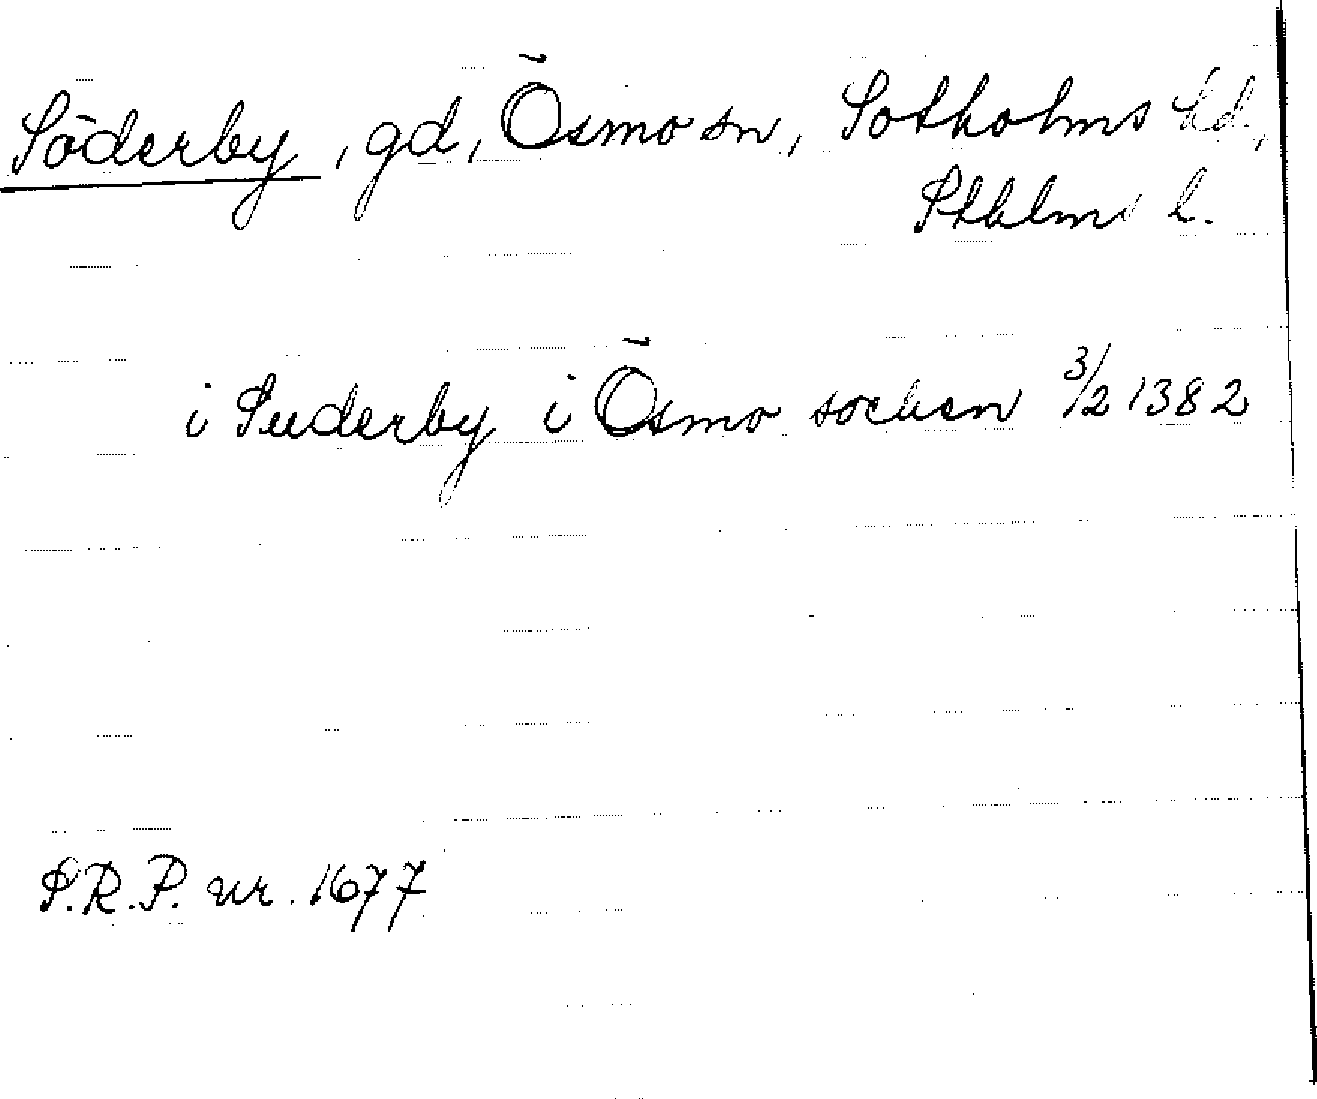 Söderby, gd, Ösmo sn, Sotholms hd.,
Sthlms l.
i Suderby i Ösmo socken 3/2 1382
S.R.P. nr. 1677